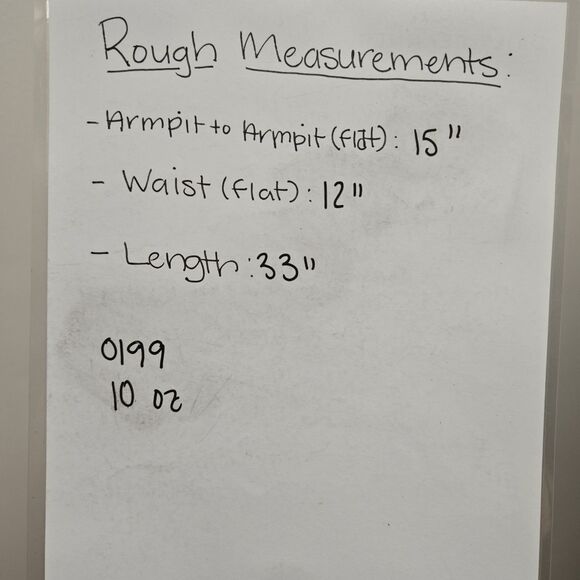 Rough Measurements:
- Armpit to Armpit (flat): 15"
- Waist (flat): 12"
- Length: 33"
0199
10 oz